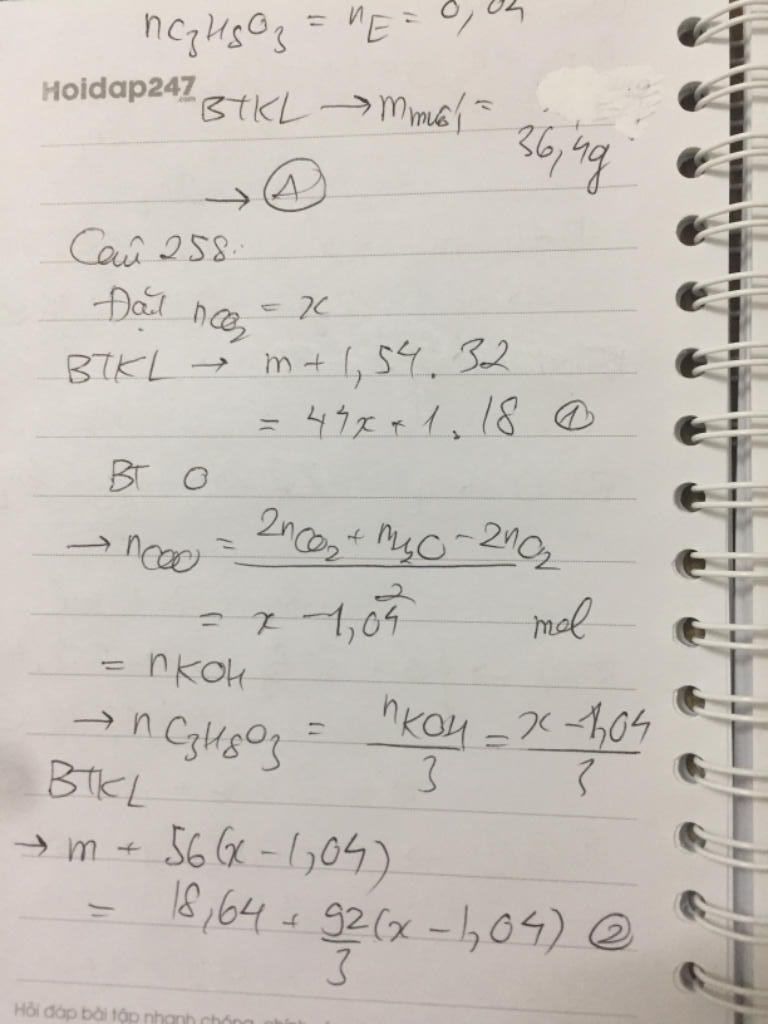 nC₃H₈O₃ = nE = 0,04
Hoidap247.com
BTKL → m muối =
36,4g
→ Ⓐ
Câu 258:
Đặt nCO₂ = x
BTKL → m + 1,54 . 32
= 44x + 1 . 18 ①
BT O
→ nCOO = (2nCO₂ + nH₂O - 2nO₂) / 2
= x - 1,04 mol
= nKOH
→ nC₃H₈O₃ = nKOH / 3 = (x - 1,04) / 3
BTKL
→ m + 56(x - 1,04)
= 18,64 + 92/3 (x - 1,04) ②
Hỏi đáp bài tập nhanh chóng, chính